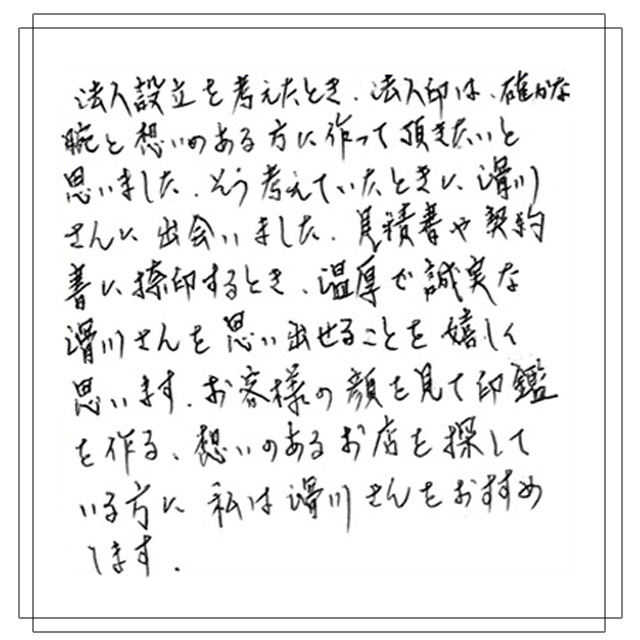 法人設立を考えたとき、法人印は、確かな
腕と想いのある方に作って頂きたいと
思いました。そう考えていたときに滑川
さんに出会いました。見積書や契約
書に捺印するとき、温厚で誠実な
滑川さんを思い出せることを嬉しく
思います。お客様の顔を見て印鑑
を作る、想いのあるお店を探して
いる方に私は滑川さんをおすすめ
します。